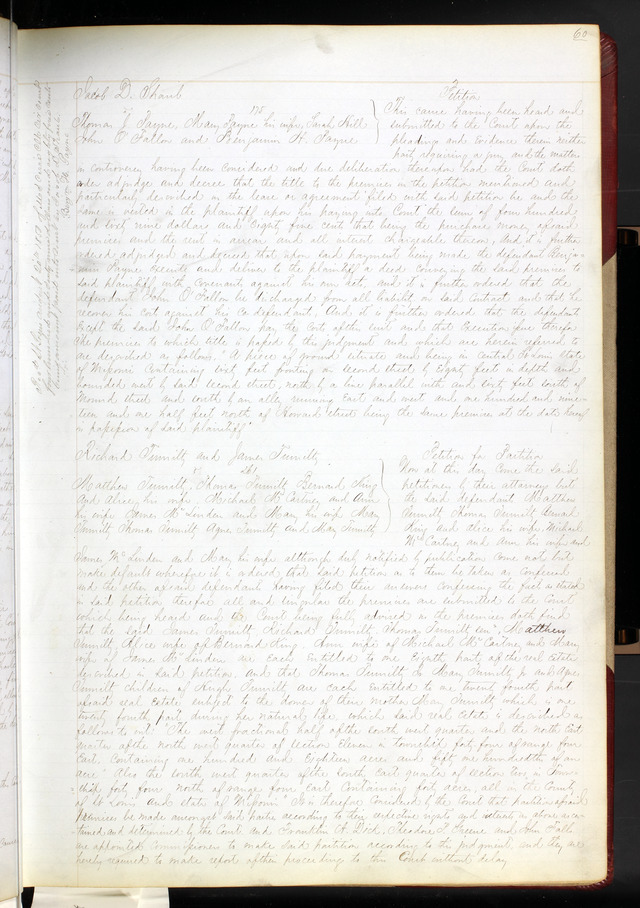 60
Jacob D. Shaub
vs 175
Thomas J Payne, Mary Payne his wife, Sarah Hill
John O'Fallon and Benjamin H. Payne
Petition
This cause having been heard and
submitted to the Court upon the
pleadings and evidence therein neither
party requiring a jury, and the matters
in controversy having been considered and due deliberation thereupon had the Court doth
order adjudge and decree that the title to the premises in the petition mentioned and
particularly described in the lease or agreement filed with said petition be and the
same is vested in the plaintiff upon his paying into Court the sum of four hundred
and sixty nine dollars and Eighty five cents that being the purchase money
premises and the rent in arrear and all interest chargeable thereon, and it is further
ordered adjudged and decreed that upon said payment being made the defendant Benja-
min Payne execute and deliver to the plaintiff a deed conveying the said premises to
said plaintiff with covenant against his own acts, and it is further ordered that the
defendant John O'Fallon be discharged from all liability on said contract and that he
recover his cost against his co defendant. And it is further ordered that the defendant
Except the said John O'Fallon pay the cost of this suit and that Execution issue therefor
The premises to which title is passed by this judgment and which are herein referred to
are described as follows, "A piece of ground situate and being in Central St Louis, State
of Missouri Containing sixty feet fronting on second street by Eighty feet in depth and
bounded west by said second street, north by a line parallel with and sixty feet south of
Mound street and south by an alley running East and west and one hundred and nine-
teen and one half feet north of Howard street being the same premises at the date hereof
in possession of said plaintiff"
Richard Timmilty and James Timmilty
vs 261
Matthew Timmilty, Thomas Timmilty Bernard King
And Alice his wife, Michael McCartney and Ann
his wife James McLinden and Mary his wife Mary
Timmilty Thomas Timmilty Agnes Timmilty And Mary Timmilty
Petition for Partition
Now at this day Come the said
petitioners by their attorney but
the said defendant Matthew
Timmilty Thomas Timmilty Bernard
King and Alice his wife Michael
McCartney and Ann his wife and
James McLinden and Mary his wife although duly notified by publication come not but
make default wherefore it is ordered that said petition as to them be taken as confessed
and the other defendants having filed their answers confessing the facts as stated
in said petition therefor all and singular the premises are submitted to the Court
which being heard and the Court being fully advised in the premises doth find
that the said James Timmilty Richard Timmilty, Thomas Timmilty Senr Matthew
Timmilty Alice wife of Bernard King, Ann wife of Michael McCartney and Mary
wife of James McLinden are each entitled to one Eighth part of the real estate
described in said petition. And that Thomas Timmilty Jr Mary Timmilty Jr and Agnes
Timmilty children of Hugh Timmilty are each entitled to one twenty fourth part
of said real estate subject to the dower of their mother Mary Timmilty which is one
twenty fourth part during her natural life which said real estate is described as
follows to wit: "The west fractional half of the south west quarter and the north East
quarter of the north west quarter of section Eleven in township forty four of range four
East, Containing one hundred and Eighteen acres and fifty one hundredths of an
acre" Also the south west quarter of the south East quarter of section two in Town-
ship forty four North of range four East Containing forty acres, all in the County
of St Louis And state of Missouri" It is therefore considered by the Court that partition of said
premises be made amongst said parties according to their respective rights and interests as above ascer-
tained and determined by the Court and Franklin A Dick, Theodore L Greene and John Falls
are appointed Commissioners to make said partition according to this judgment, and they are
hereby required to make report of their proceeding to this Court without delay